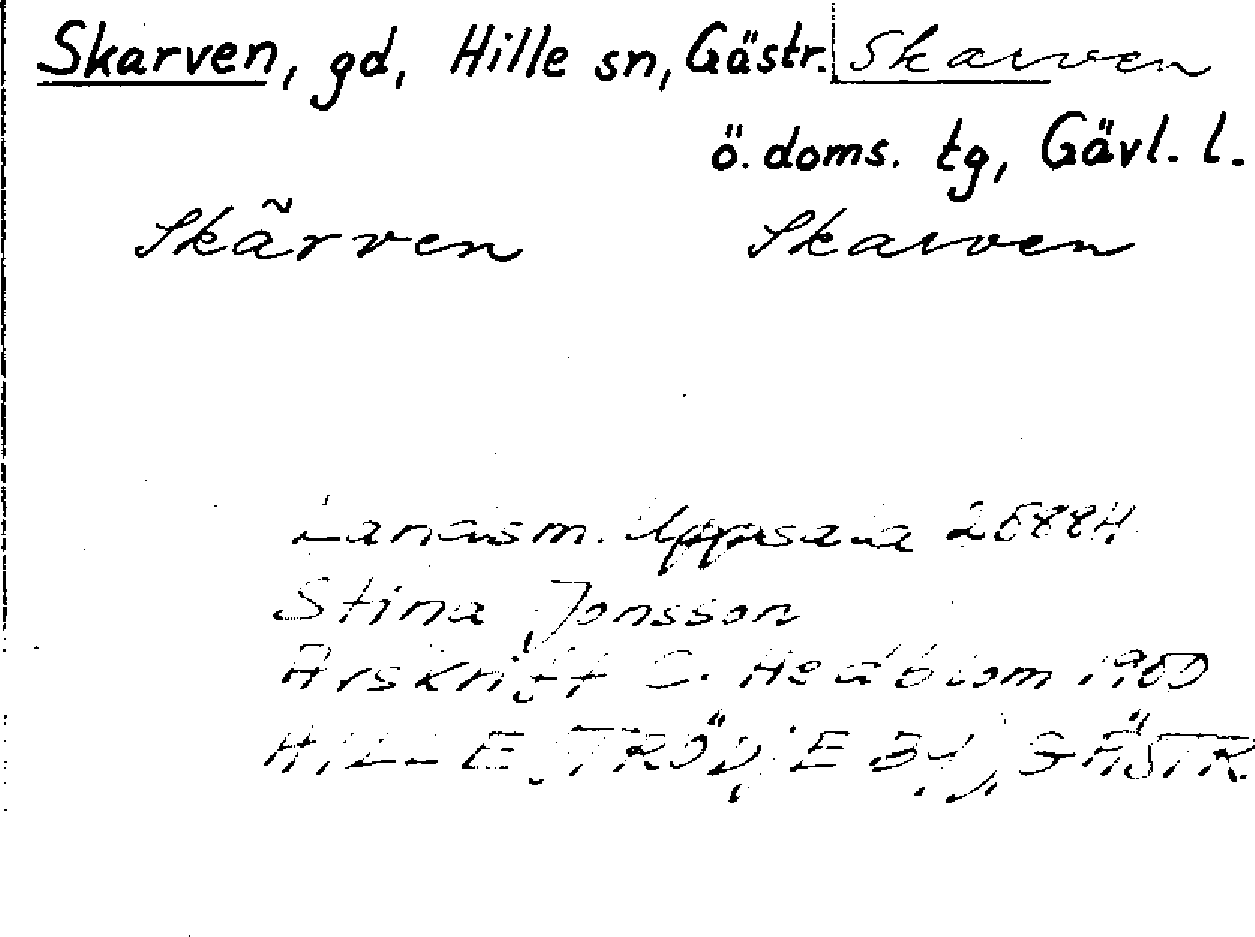 Skarven, gd, Hille sn, Gästr. Skarven
ö. doms. tg, Gävl. l.
Skãrven Skarven
Landsm. Uppsala
Stina Jonsson
Årskrift C. Hedblom
HILLE, TRÖDJE BY, GÄSTR.